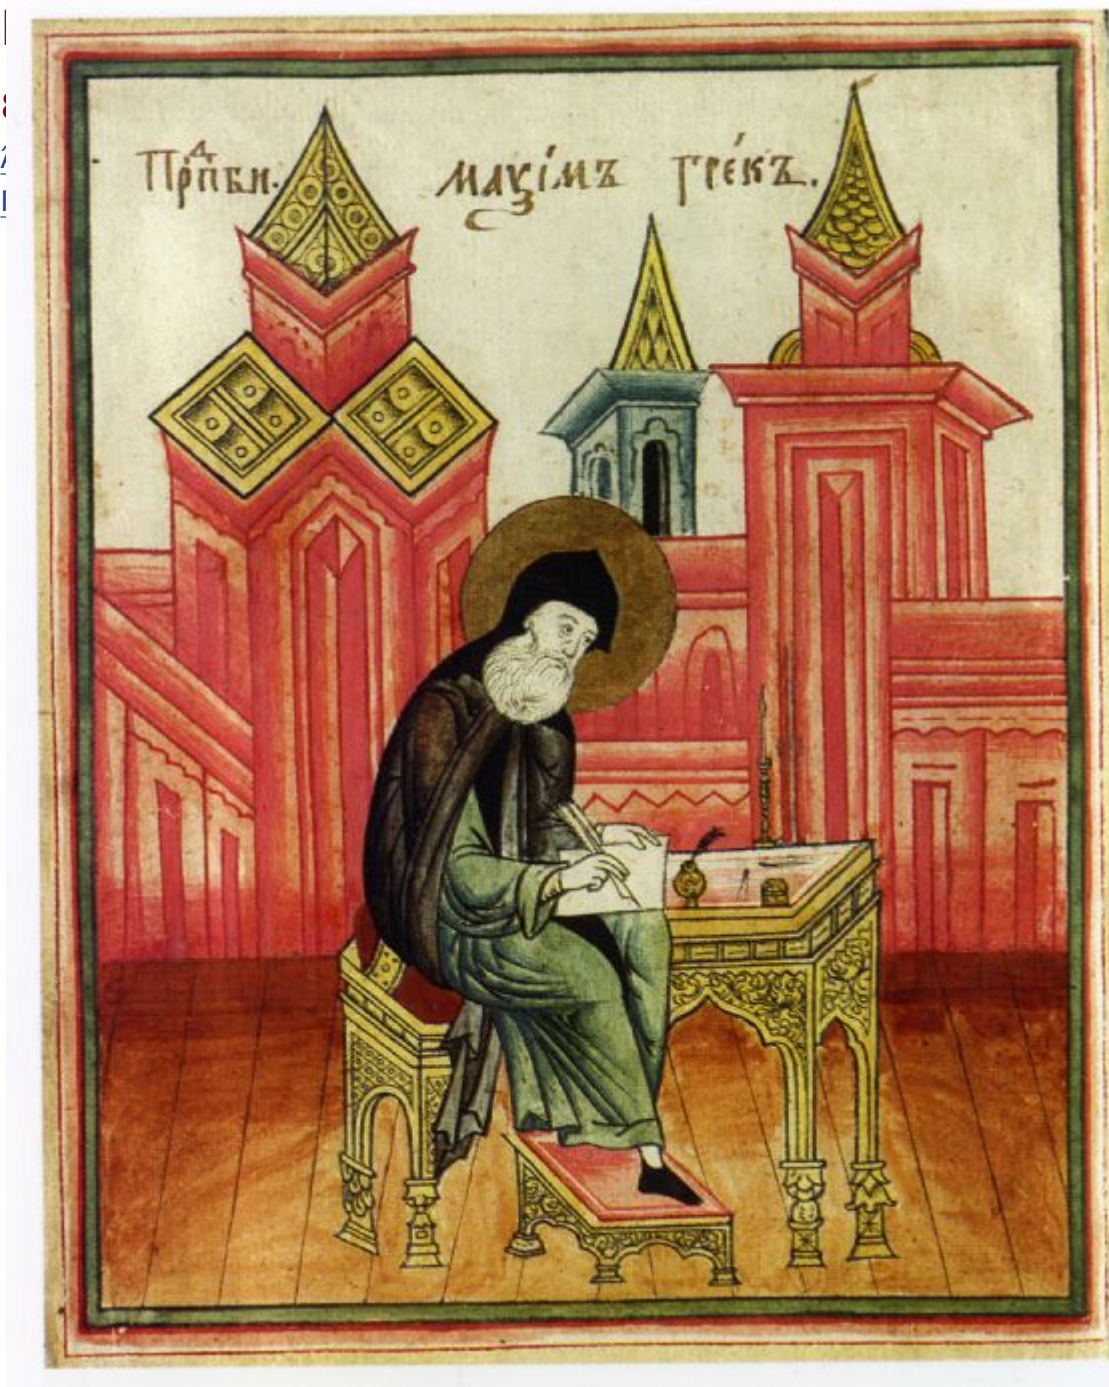 Прⷣпбн. маѯі́мъ гре́къ.